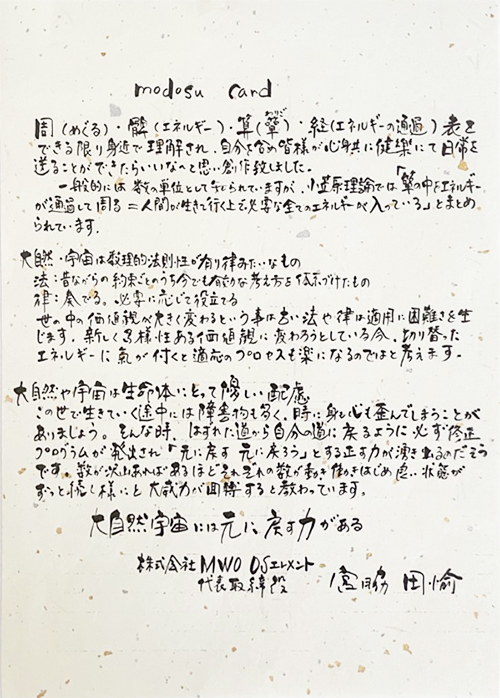 modosu card
周(めぐる)・髀(エネルギー)・算(箪)・経(エネルギーの通過) 表を
できる限り身近で理解され、自分を含め皆様が心身共に健樂にて日常を
送ることができたらいいなぁと思い創作致しました。
一般的には 数の単位として予えられていますが、小笠原理論では「箪の中をエネルギー
が通過して周る = 人間が生きて行く上で必要な全てのエネルギーが入っている」とまとめ
られています。
大自然・宇宙は数理的法則性が有り律みたいなもの
法:昔ながらの約束ごとのうち今でも有効な考え方を体系づけたもの
律:奏でる。必要に応じて役立てる
世の中の価値観が大きく変わるという事は古い法や律は適用に困難さを生
じます。新しく多様性ある価値観に変わろうとしている今、切り替った
エネルギーに氣が付くと適応のプロセスも楽になるのではと考えます。
大自然や宇宙は生命体にとって優しい配慮
この世で生きていく途中には障害物も多く、時に身も心も歪んでしまうことが
ありましょう。そんな時、はずれた道から自分の道に戻るように必ず修正
プログラムが発出され「元に戻す 元に戻ろう」とする正す力が湧き出るのだそう
です。数が沢山あればあるほどそれぞれの数が動き働きはじめ 良い状態が
ずっと続く様にと 大威力が回轉すると教わっています。
大自然宇宙には元に戻す力がある
株式会社MWO OSエレメント
代表取締役 宮脇